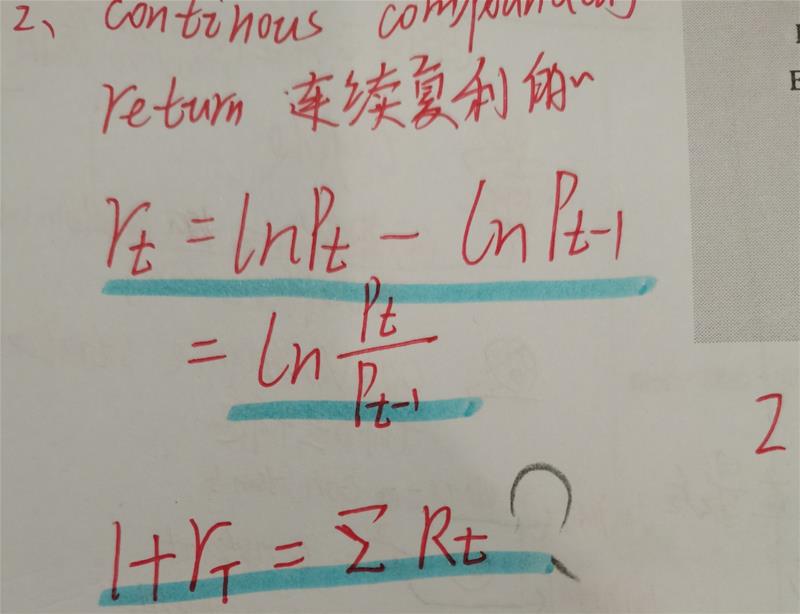 2、 continous compounding
return 连续复利的
rt = lnPt - ln Pt-1
= ln Pt/Pt-1
1+rT = Σ Rt ?
2